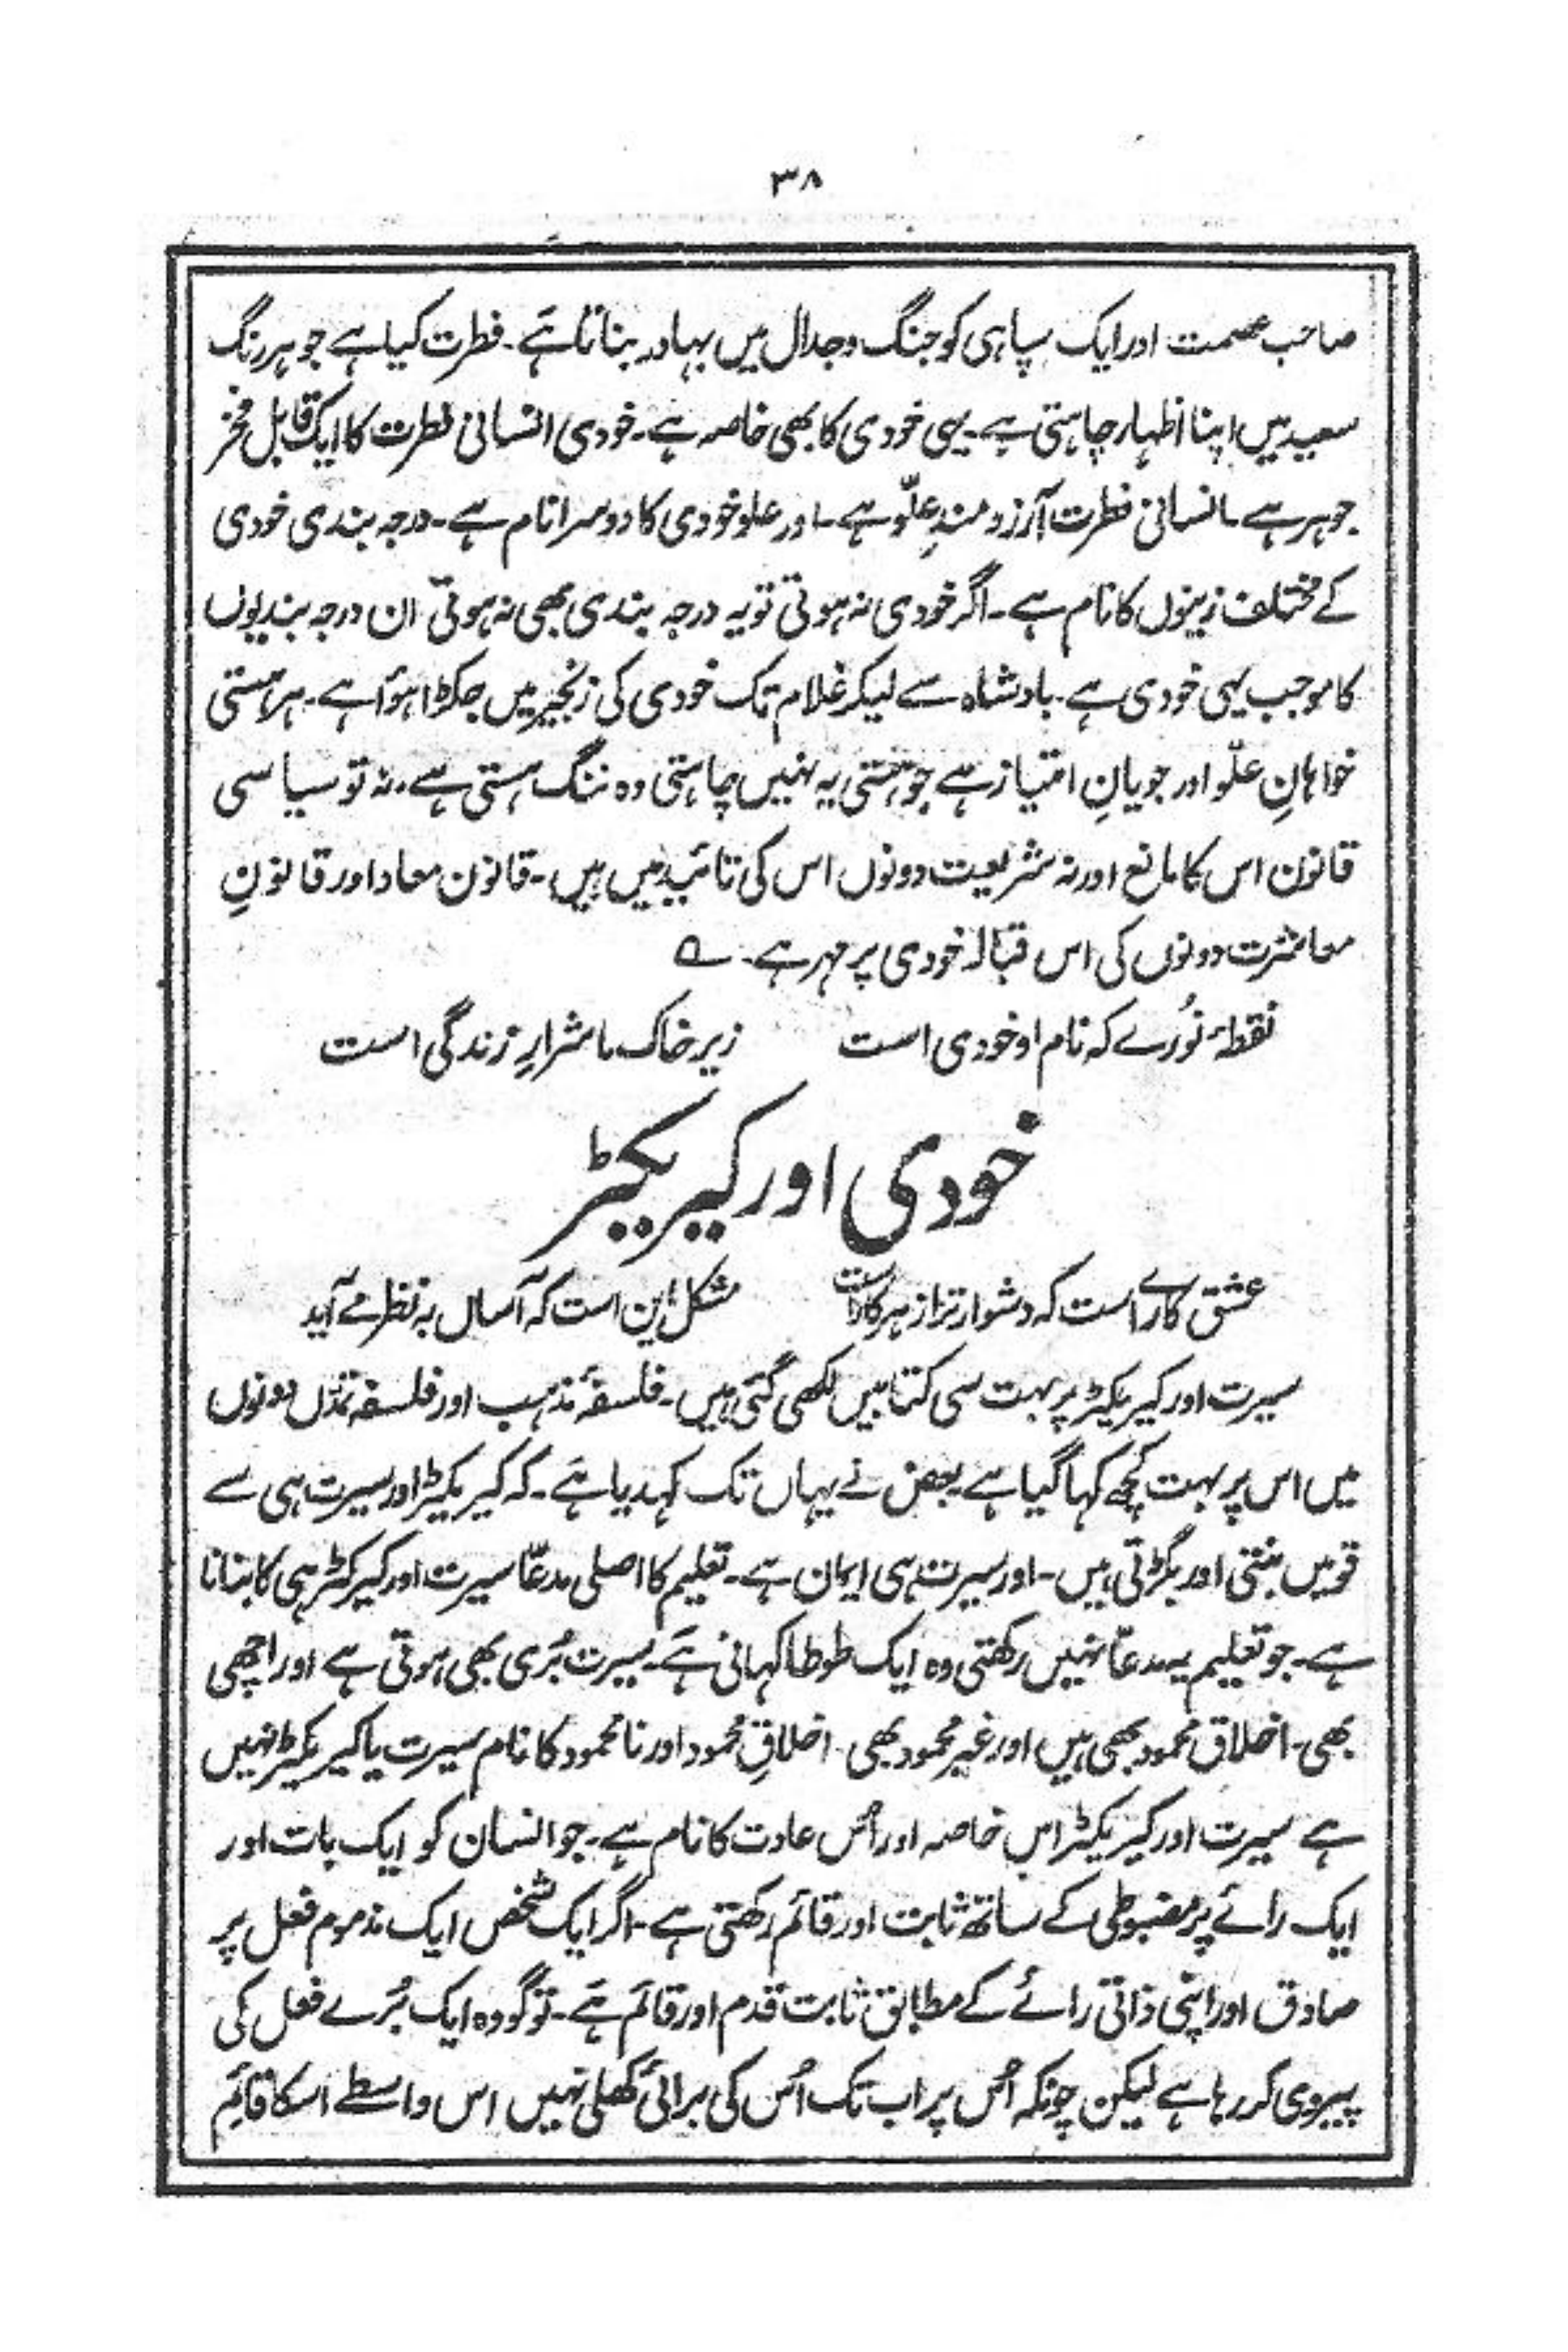 ۳۸
صاحب عصمت اور ایک سپاہی کو جنگ و جدال میں بہادر بناتا ہے۔ فطرت کیا ہے جو ہر رنگ
سعید میں اپنا اظہار چاہتی ہے۔ یہی خودی کا بھی خاصہ ہے۔ خودی انسانی فطرت کا ایک قابل فخر
جوہر ہے۔ انسانی فطرت آرزو مندِ علّو ہے۔ اور علو خودی کا دوسرا نام ہے۔ درجہ بندی خودی
کے مختلف زینوں کا نام ہے۔ اگر خودی نہ ہوتی تو یہ درجہ بندی بھی نہ ہوتی ان درجہ بندیوں
کا موجب یہی خودی ہے۔ بادشاہ سے لیکر غلام تک خودی کی زنجیر میں جکڑا ہوٴا ہے۔ ہر ہستی
خواہانِ علّو اور جویانِ امتیاز ہے جو ہستی یہ نہیں چاہتی وہ ننگ ہستی ہے۔ نہ تو سیاسی
قانون اس کا مانع اور نہ شریعت دونوں اس کی تائید میں ہیں۔ قانون معاد اور قانونِ
معاشرت دونوں کی اس قبالۂ خودی پر مہر ہے۔ ؎
نقطۂ نُورے کہ نام او خودی است زیر خاک ما شرارِ زندگی است
خودی اور کیریکٹر
عشق کارے است کہ دشوار تر از ہر کار است مشکل این است کہ آسان بہ نظر مے آید
سیرت اور کیریکٹر پر بہت سی کتابیں لکھی گئی ہیں۔ فلسفۂ مذہب اور فلسفہ تمدّن دونوں
میں اس پر بہت کچھ کہا گیا ہے بعض نے یہاں تک کہدیا ہے۔ کہ کیریکٹر اور سیرت ہی سے
قومیں بنتی اور بگڑتی ہیں۔ اور سیرت ہی ایمان ہے۔ تعلیم کا اصلی مدعّا سیرت اور کیرکٹر ہی کا بنانا
ہے۔ جو تعلیم یہ مدعّا نہیں رکھتی وہ ایک طوطا کہانی ہے۔ سیرت بُری بھی ہوتی ہے اور اچھی
بھی۔ اخلاق محمود بھی ہیں اور غیر محمود بھی۔ اخلاقِ محمود اور نا محمود کا نام سیرت یا کیریکٹر نہیں
ہے سیرت اور کیریکٹر اس خاصہ اور اُس عادت کا نام ہے۔ جو انسان کو ایک بات اور
ایک رائے پر مضبوطی کے ساتھ ثابت اور قائم رکھتی ہے۔ اگر ایک شخص ایک مذموم فعل پر
صادق اور اپنی ذاتی رائے کے مطابق ثابت قدم اور قائم ہے۔ تو گو وہ ایک بُرے فعل کی
پیروی کر رہا ہے لیکن چونکہ اُس پر اب تک اُس کی برائی کھلی نہیں اس واسطے اسکا قائم